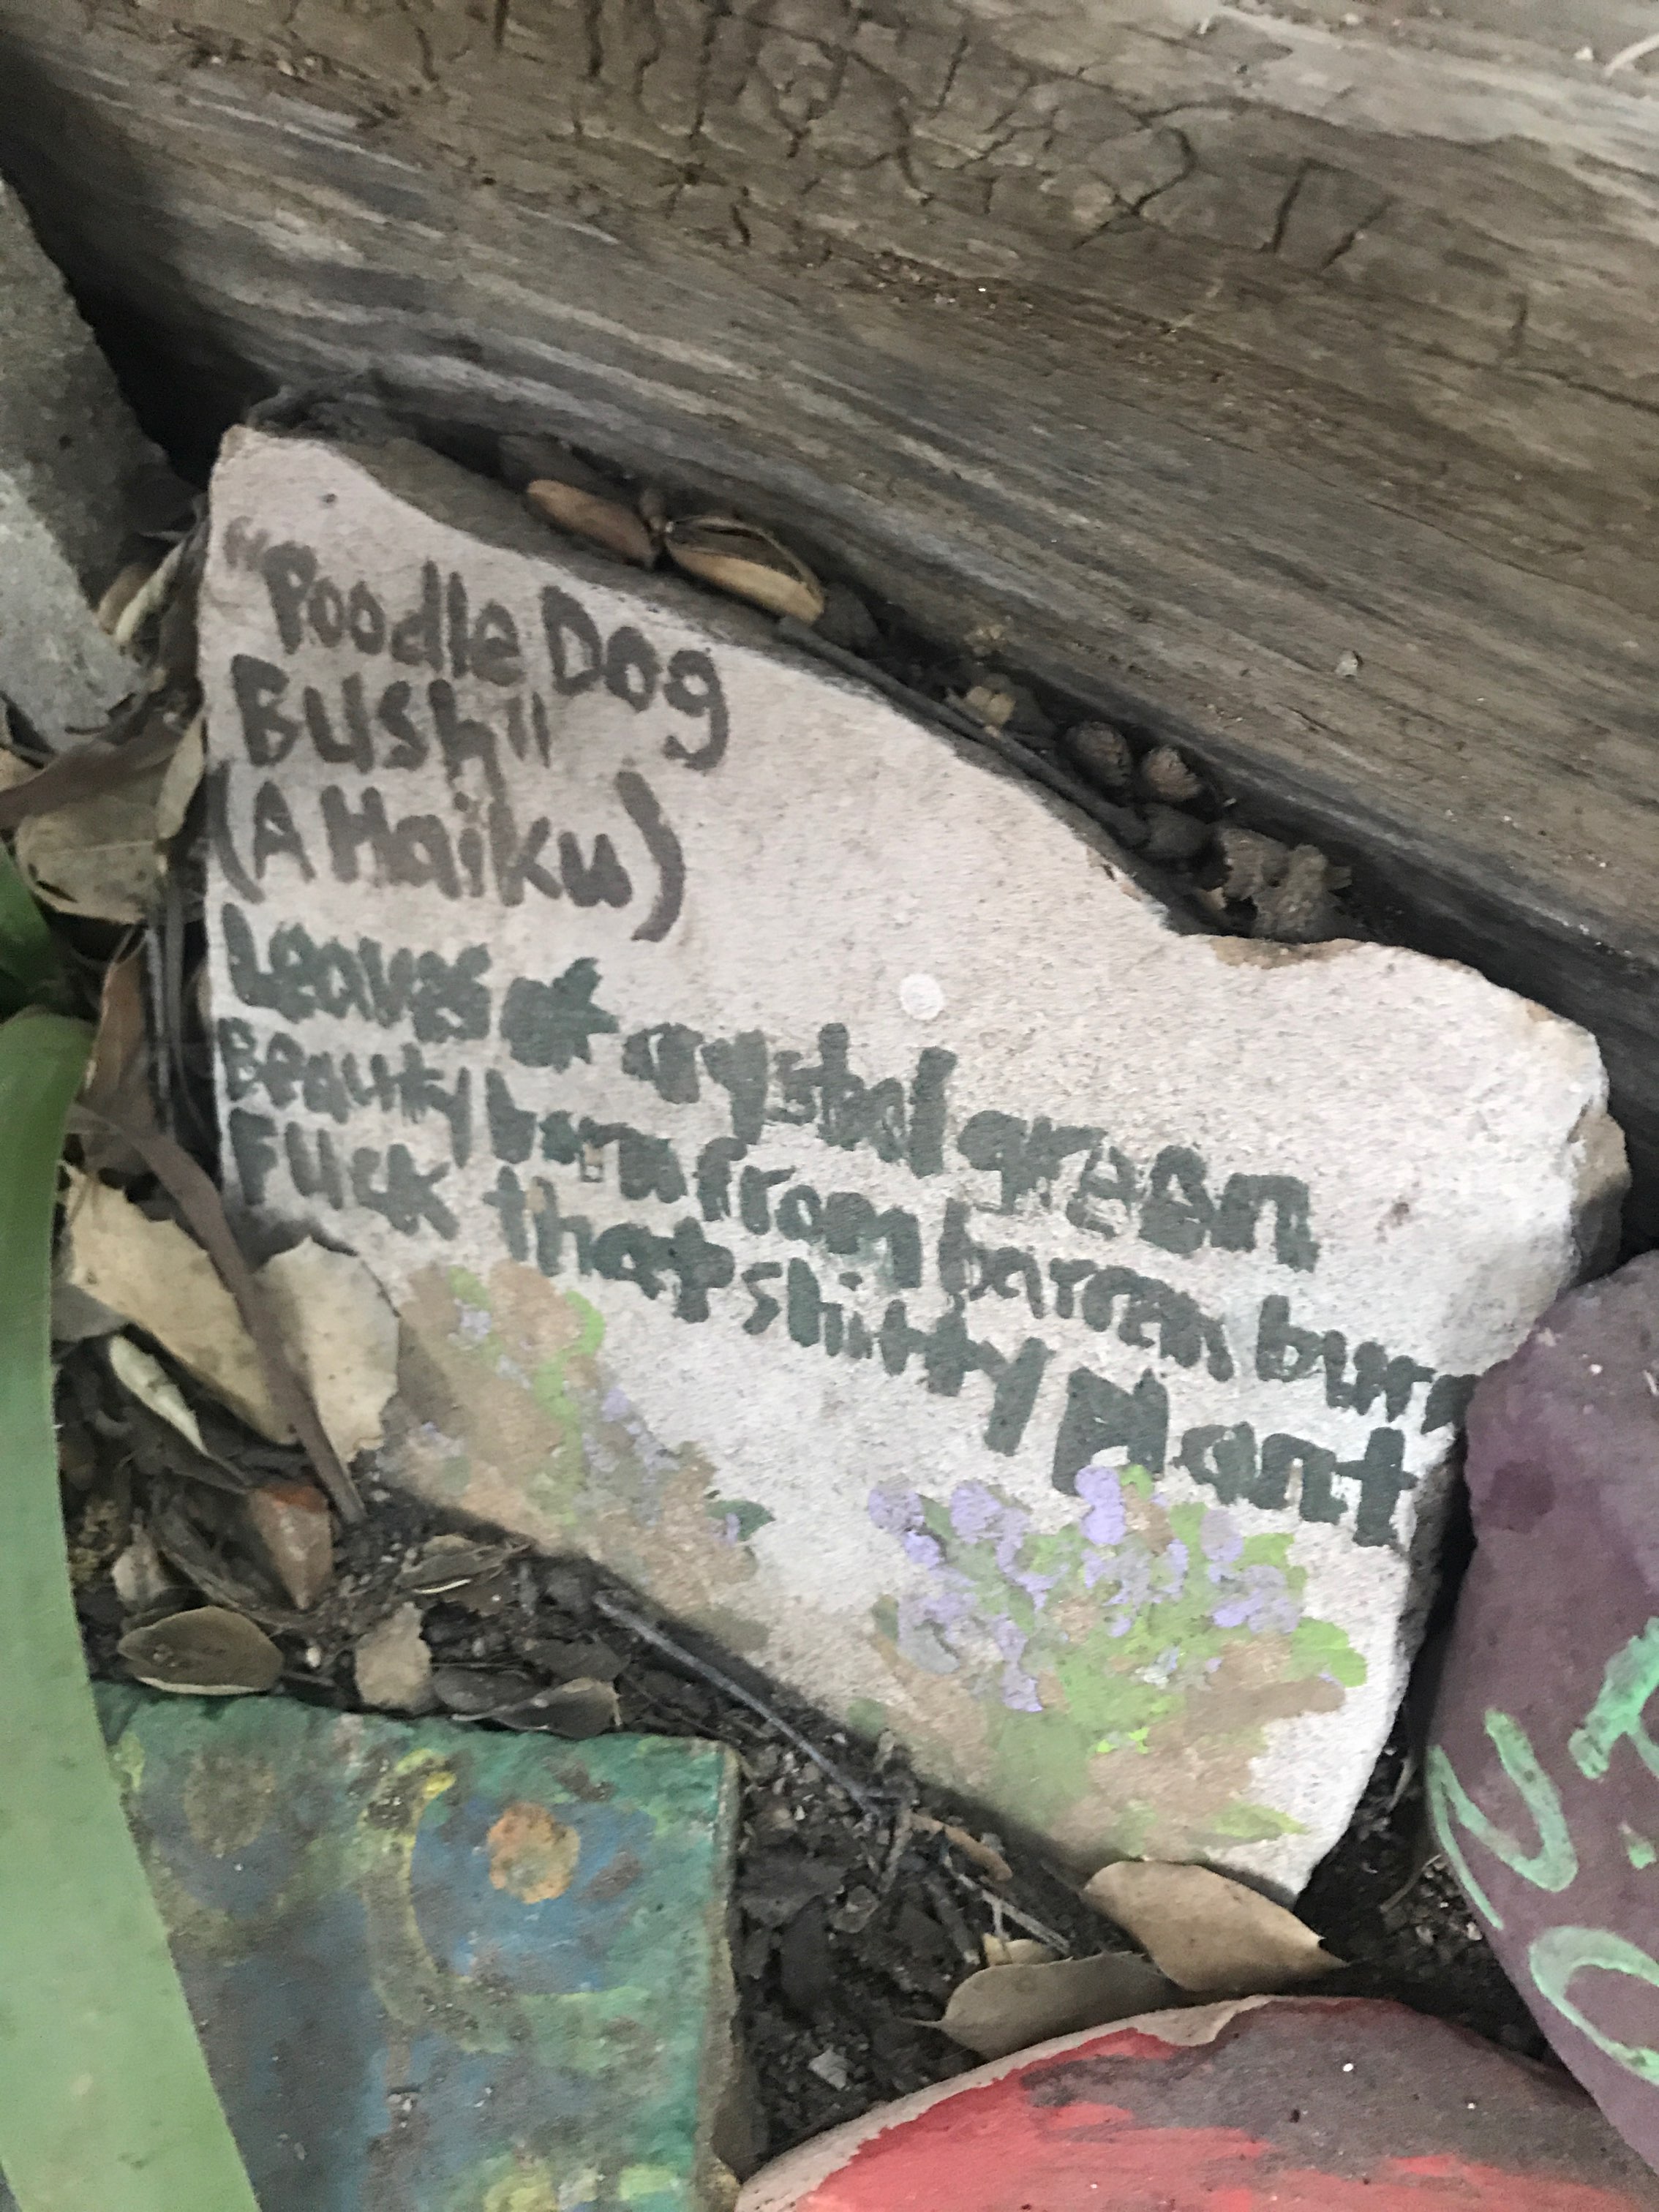 "Poodle Dog
Bush"
(A Haiku)
Leaves of crystal green
Beauty born from barren burn
Fuck that shitty plant